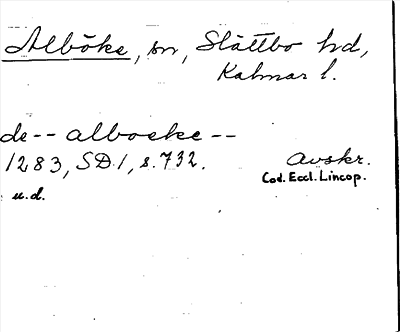 Alböke, sn, Slättbo hd,
Kalmar l.
de -- alboeke --
1283, SD 1, s. 732. Avskr.
Cod. Eccl. Lincop.
u.d.